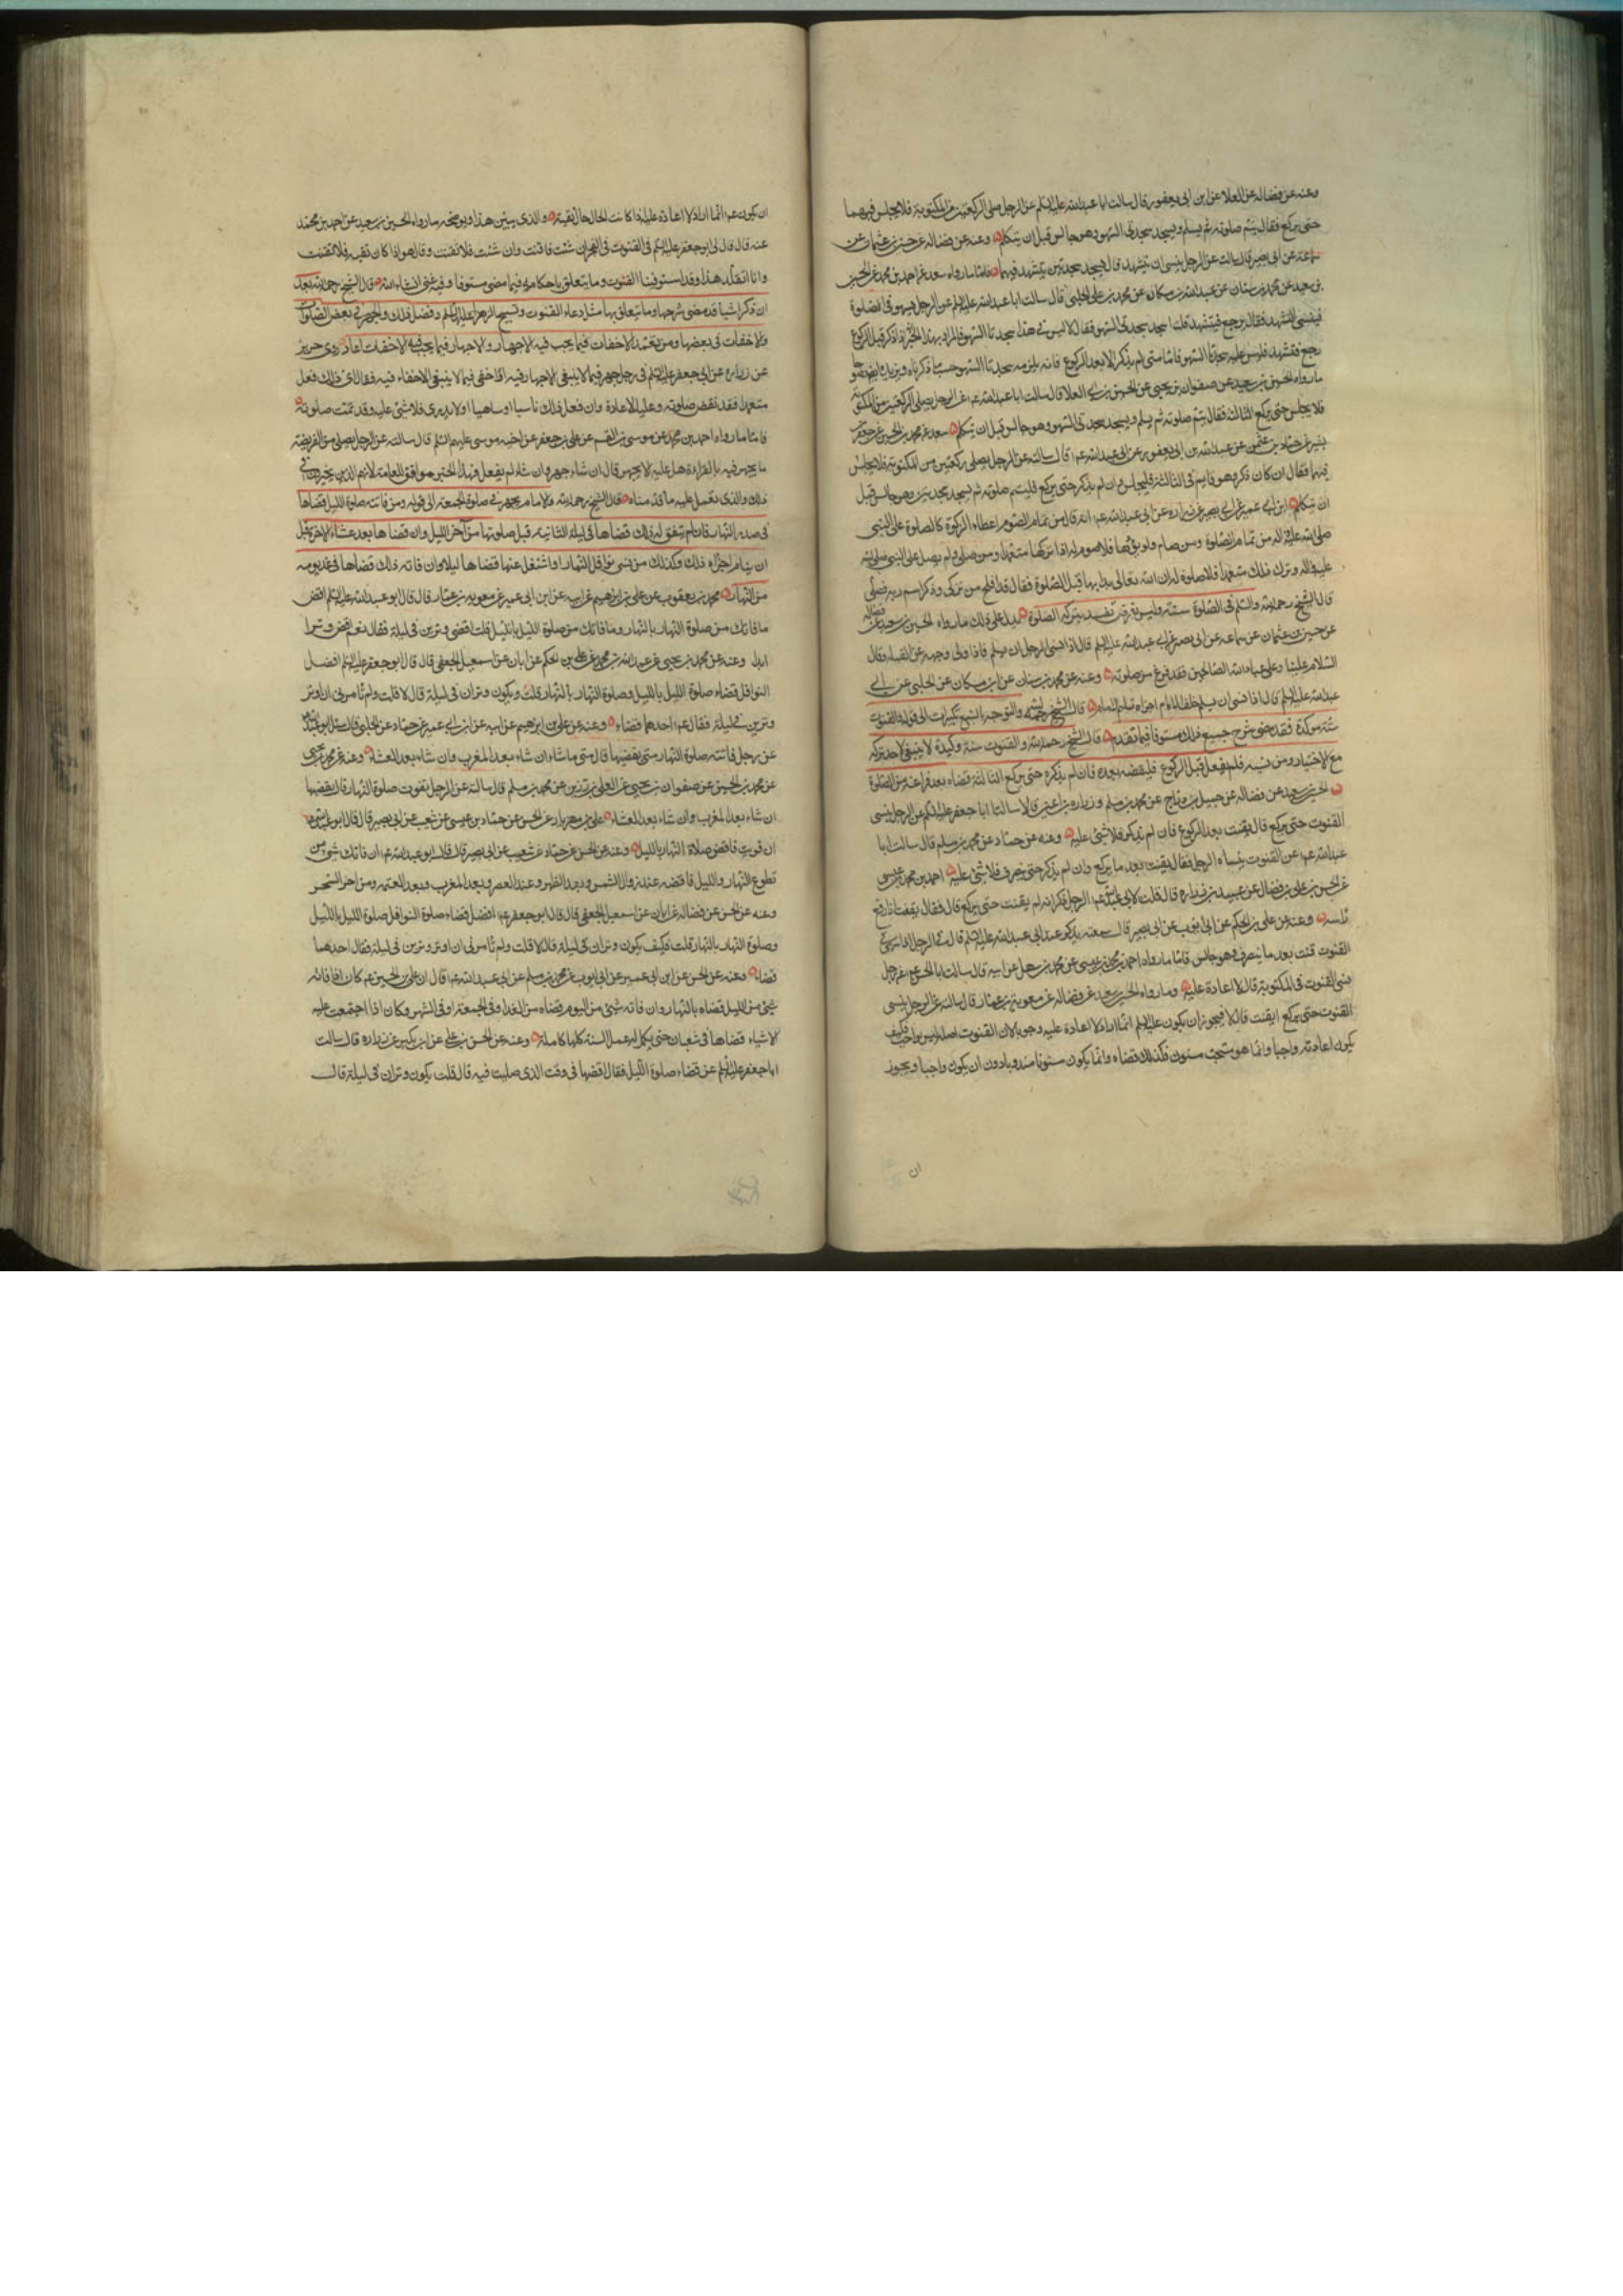 وعنه عن فضاله عن العلا عن ابن ابى يعفور قال سالت ابا عبدالله عليه السلم عن الرجل صلى الركعتين من المكتوبة فلا يجلس فيهما
حتى يركع فقال يتم صلوته ثم يسلم ويسجد سجدتى السهو وهو جالس قبل ان يتكلم وعنه عن فضاله عن حسين بن عثمان عن
سماعة عن ابى بصير قال سالت عن الرجل ينسى ان يتشهد قال يسجد سجدتين يتشهد فيهما فاما ما رواه سعد عن احمد بن محمد عن الحسين
بن سعيد عن محمد بن سنان عن عبدالله بن مسكان عن محمد بن على الحلبى قال سالت ابا عبدالله عليه السلم عن الرجل يسهو فى الصلوة
فينسى التشهد فقال يرجع فيتشهد قلت ايسجد سجدتى السهو فقال لا ليس فى هذا سجدتا السهو فالمراد بهذا الخبر اذا ذكر قبل الركوع
رجع فتشهد فليس عليه سجدتا السهو فاما متى لم يذكر الا بعد الركوع فانه يلزمه سجدتا السهو حسب ما ذكرناه ويزيده ايضا
ما رواه الحسين بن سعيد عن صفوان بن يحيى عن الحسين بن ابى العلا قال سالت ابا عبدالله عم عن الرجل يصلى الركعتين من المكتوبة
فلا يجلس حتى يركع الثالثة فقال يتم صلوته ثم يسلم ويسجد سجدتى السهو وهو جالس قبل ان يتكلم سعد عن محمد بن الحسين عن جعفر بن
بشير عن حماد بن عثمن عن عبدالله بن ابى يعفور عن ابى عبدالله عم قال سالته عن الرجل يصلى ركعتين من المكتوبة فلا يجلس
فيهما فقال ان كان ذكر وهو قايم فى الثالثة فليجلس وان لم يذكر حتى يركع فليتم صلوته ثم يسجد سجدتين وهو جالس قبل
ان يتكلم ابن ابى عمير عن ابى بصير عن زراره عن ابى عبدالله عم انه قال من تمام الصوم اعطاء الزكوة كالصلوة على النبى
صلى الله عليه واله من تمام الصلوة ومن صام ولم يؤدها فلا صوم له اذا تركها متعمدا ومن صلى ولم يصل على النبى صلى الله
عليه واله وترك ذلك متعمدا فلا صلوة له ان الله تعالى بدا بها قبل الصلوة فقال قد افلح من تزكى وذكر اسم ربه فصلى
قال الشيخ رحمه الله والسلم فى الصلوة سنة وليس بفرض تفسد بتركه الصلوة يدل على ذلك ما رواه الحسين بن سعيد عن فضاله
عن حسين بن عثمان عن سماعه عن ابى بصير عن ابى عبدالله عليه السلم قال اذا نسى الرجل ان يسلم فاذا ولى وجهه عن القبله وقال
السلام علينا وعلى عباد الله الصالحين فقد فرغ من صلوته وعنه عن محمد بن سنان عن ابن مسكان عن الحلبى عن ابى
عبدالله عليه السلم قال اذا نسى ان يسلم خلف الامام اجزاه تسليم الامام قال الشيخ رحمه الله والتوجه بالسبع تكبيرات الى قوله والقنوت
سنة موكدة فقد مضى شرح جميع ذلك مستوفا فيما تقدم قال الشيخ رحمه الله والقنوت سنة وكيدة لا ينبغى لاحد تركه
مع الاختيار ومن نسيه فلم يفعل قبل الركوع فليقضه بعده فان لم يذكره حتى يركع الثالثة قضاه بعد فراغه من الصلوة
الحسين بن سعيد عن فضاله عن جميل بن دراج عن محمد بن مسلم وزراره بن اعين قالا سالنا ابا جعفر عليه السلم عن الرجل ينسى
القنوت حتى يركع قال يقنت بعد الركوع فان لم يذكر فلا شئ عليه وعنه عن حماد عن محمد بن مسلم قال سالت ابا
عبدالله عم عن القنوت ينساه الرجل فقال يقنت بعد ما يركع وان لم يذكر حتى ينصرف فلا شئ عليه احمد بن محمد بن عيسى
عن الحسن بن على بن فضال عن عبيد بن زراره قال قلت لابى عبدالله عم الرجل ذكر انه لم يقنت حتى يركع قال فقال يقنت اذا رفع
راسه وعنه عن على بن الحكم عن ابى ايوب عن ابى بصير قال سمعته يذكر عند ابى عبدالله عليه السلم قال فى الرجل اذا سهى فى
القنوت قنت بعد ما ينصرف وهو جالس فاما ما رواه احمد بن محمد بن عيسى عن محمد بن سهل عن ابيه قال سالت ابا الحسن عم عن رجل
نسى القنوت فى المكتوبة قال لا اعادة عليه وما رواه الحسين بن سعيد عن فضاله عن معوية بن عمار قال سالته عن الرجل ينسى
القنوت حتى يركع ايقنت قال لا فيجوز ان يكون عليه السلم انما اراد لا اعادة عليه وجوبا لان القنوت اصله ليس بواجب فكيف
يكون اعادته واجبا وانما هو مستحب مسنون فكذلك قضاه وانما يكون مسنونا مندوبا دون ان يكون واجبا ويجوز
ان
ان يكون عم انما اراد لا اعادة عليه اذا كانت الحال حال تقية والذى يبين هذا ويوضحه ما رواه الحسين بن سعيد عن احمد بن محمد
عنه قال قال لى ابو جعفر عليه السلم فى القنوت فى الفجر ان شئت فاقنت وان شئت فلا تقنت وقال هو اذا كان تقيه فلا تقنت
وانا اتقلد هذا وقد استوفينا القنوت وما يتعلق باحكامه فيما مضى مستوفا وفيه غنى ان شاء الله قال الشيخ رحمه الله بعد
ان ذكر اشيا قد مضى شرحها وما يتعلق بها مثل دعاء القنوت وتسبيح الزهرا عليها السلم وفضل ذلك والجهر فى بعض الصلوات
والاخفات فى بعضها ومن تعمد الاخفات فيما يجب فيه الاجهار والاجهار فيما يجب فيه الاخفات اعاد روى حريز
عن زراره عن ابى جعفر عليه السلم فى رجل جهر فيما لا ينبغى الاجهار فيه او اخفى فيما لا ينبغى الاخفاء فيه فقال اى ذلك فعل
متعمدا فقد نقض صلوته وعليه الاعادة وان فعل ذلك ناسيا او ساهيا او لا يدرى فلا شئ عليه وقد تمت صلوته
فاما ما رواه احمد بن محمد عن موسى بن القسم عن على بن جعفر عن اخيه موسى عليهم السلم قال سالته عن الرجل يصلى من الفريضة
ما يجهر فيه بالقراءة هل عليه الا يجهر قال ان شاء جهر وان شاء لم يفعل فهذا الخبر موافق للعامة لانهم الذين يخيرون فى
ذلك والذى نعمل عليه ما قدمناه قال الشيخ رحمه الله والامام يجهر فى صلوة الجمعة الى قوله ومن فاتته صلوة الليل قضاها
فى صدر النهار فان لم يتفق له ذلك قضاها فى ليلة الثانية قبل صلوتها من اخر الليل وان قضاها بعد عشاء الاخرة قبل
ان ينام اجزاه ذلك وكذلك من نسى نوافل النهار او اشتغل عنها قضاها ليلا وان فاته ذلك قضاها فى غد يومه
من النهار محمد بن يعقوب عن على بن ابرهيم عن ابيه عن ابن ابى عمير عن معويه بن عمار قال قال ابو عبدالله عليه السلم اقض
ما فاتك من صلوة النهار بالنهار وما فاتك من صلوة الليل بالليل قلت اقضى وترين فى ليلة فقال نعم اقض وترا
ابدا وعنه عن محمد بن يحيى عن عبدالله بن محمد عن على بن الحكم عن ابان عن اسمعيل الجعفى قال قال ابو جعفر عليه السلم افضل
النوافل قضاء صلوة الليل بالليل وصلوة النهار بالنهار قلت ويكون وتران فى ليلة قال لا قلت ولم تامرنى ان اوتر
وترين فى ليلة فقال عم احدهما قضاء وعنه عن على بن ابرهيم عن ابيه عن ابن ابى عمير عن حماد عن الحلبى قال سئل ابو عبدالله
عن رجل فاتته صلوة النهار متى يقضيها قال متى ما شاء ان شاء بعد المغرب وان شاء بعد العشاء وعنه عن محمد بن يحيى
عن محمد بن الحسين عن صفوان بن يحيى عن العلا بن رزين عن محمد بن مسلم قال سالته عن الرجل يفوت صلوة النهار قال يقضيها
ان شاء بعد المغرب وان شاء بعد العشاء على بن مهزيار عن الحسن عن حماد بن عيسى عن شعيب عن ابى بصير قال قال ابو عبدالله عم
ان قويت فاقض صلاة النهار بالليل وعنه عن الحسن عن حماد عن شعيب عن ابى بصير قال قال ابو عبدالله عم ان فاتك شئ من
تطوع النهار والليل فاقضه عند زوال الشمس وبعد الظهر وعند العصر وبعد المغرب وبعد العتمه ومن اخر السحر
وعنه عن الحسن عن فضاله عن ابان عن اسمعيل الجعفى قال قال ابو جعفر عم افضل قضاء صلوة النوافل صلوة الليل بالليل
وصلوة النهار بالنهار قلت فكيف يكون وتران فى ليلة قال لا قلت ولم تامرنى ان اوتر وترين فى ليلة فقال احدهما
قضاء وعنه عن الحسن عن ابن ابى عمير عن ابى ايوب عن محمد بن مسلم عن ابى عبدالله عم قال ان على بن الحسين عم كان اذا فاته
شئ من الليل قضاه بالنهار وان فاته شئ من اليوم قضاه من الغد او فى الجمعة او فى الشهر وكان اذا اجتمعت عليه
الاشياء قضاها فى شعبان حتى يكمل له عمل السنة كلها كاملة وعنه عن الحسن بن على عن ابن بكير عن زراره قال سالت
ابا جعفر عليه السلم عن قضاء صلوة الليل فقال اقضها فى وقت الذى صليت فيه قال قلت يكون وتران فى ليلة قال